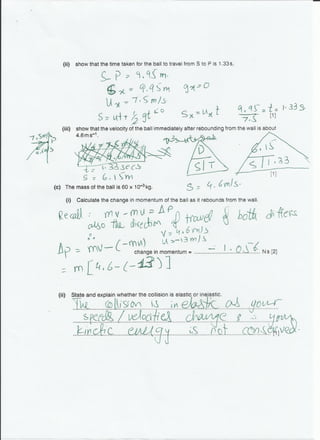 (ii) show that the time taken for the ball to travel from S to P is 1.33s.
S P = 9.95 m.
Sx = 9.95m gx=0
Ux = 7.5 m/s
S = ut + ½ gt² Sx = Ux t 9.95 = t = 1.33 s
7.5 [1]
(iii) show that the velocity of the ball immediately after rebounding from the wall is about
4.6ms⁻¹.
7.5m/s
D
S T
6.15
S 1.33
t = 1.33 secs
S = 6.15m
[1]
S = 4.6m/s.
(c) The mass of the ball is 60 × 10⁻³kg.
(i) Calculate the change in momentum of the ball as it rebounds from the wall.
Recall : mv - mu = Δp
also the direction of travel of both differs
∴ V = 4.6m/s
U = -13 m/s
Δp = mv - (-mu)
change in momentum = - 1.056 Ns [2]
= m [4.6 - (-13)]
(ii) State and explain whether the collision is elastic or inelastic.
The collision is inelastic as your
speeds / velocities change & ∴ your
kinetic energy is not conserved.